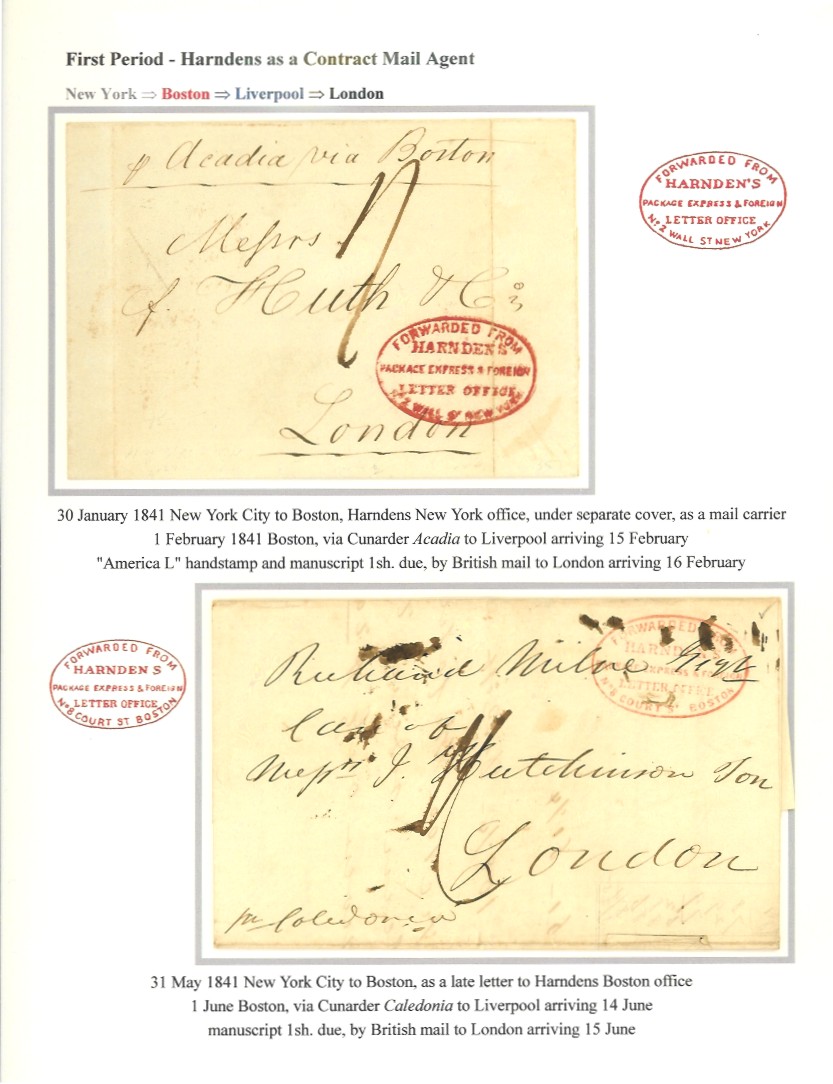 First Period - Harndens as a Contract Mail Agent
New York ⇒ Boston ⇒ Liverpool ⇒ London
p Acadia via Boston
Messrs
f. Huth & Co
London
FORWARDED FROM
HARNDEN'S
PACKAGE EXPRESS & FOREIGN
LETTER OFFICE
No 2 WALL ST NEW YORK
FORWARDED FROM
HARNDEN'S
PACKAGE EXPRESS & FOREIGN
LETTER OFFICE
No 2 WALL ST NEW YORK
30 January 1841 New York City to Boston, Harndens New York office, under separate cover, as a mail carrier
1 February 1841 Boston, via Cunarder Acadia to Liverpool arriving 15 February
"America L" handstamp and manuscript 1sh. due, by British mail to London arriving 16 February
FORWARDED FROM
HARNDEN S
PACKAGE EXPRESS & FOREIGN
LETTER OFFICE
No 8 COURT ST BOSTON
FORWARDED
HARNDEN'S
EXPRESS & FOREIGN
LETTER OFFICE
No 8 COURT ST BOSTON
Richard Milne
Care of
Messrs J. Hutchinson Son
London
pr Caledonia
31 May 1841 New York City to Boston, as a late letter to Harndens Boston office
1 June Boston, via Cunarder Caledonia to Liverpool arriving 14 June
manuscript 1sh. due, by British mail to London arriving 15 June